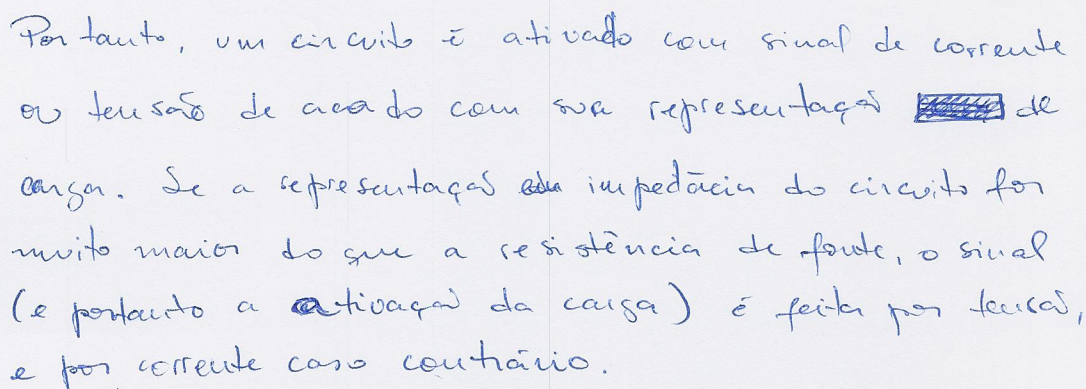 Portanto, um circuito é ativado com sinal de corrente
ou tensão de acordo com sua representação de
carga. Se a representação impedâcia do circuito for
muito maior do que a resistência de fonte, o sinal
(e portanto a ativação da carga) é feita por tensão,
e por corrente caso contrário.